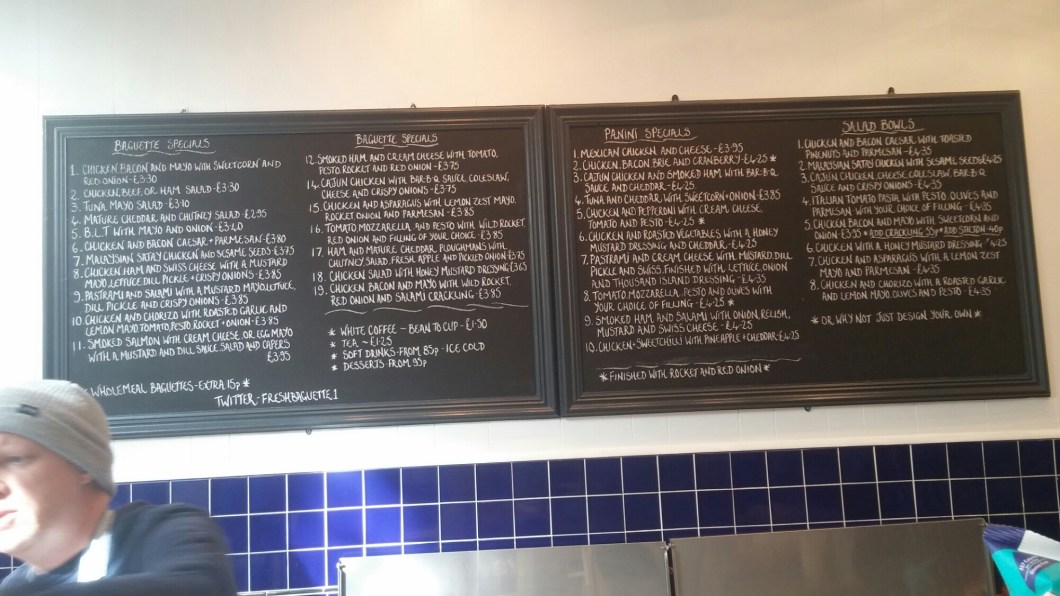 BAGUETTE SPECIALS
1. CHICKEN BACON AND MAYO WITH SWEETCORN AND
RED ONION - £3.30
2. CHICKEN, BEEF, OR HAM SALAD - £3.30
3. TUNA MAYO SALAD - £3.10
4. MATURE CHEDDAR, AND CHUTNEY SALAD - £2.95
5. B.L.T WITH MAYO AND ONION - £3.40
6. CHICKEN AND BACON CAESAR + PARMESAN - £3.80
7. MALAYSIAN SATAY CHICKEN AND SESAME SEEDS £3.75
8. CHICKEN HAM AND SWISS CHEESE WITH A MUSTARD
MAYO, LETTUCE, DILL PICKLE + CRISPY ONIONS - £3.85
9. PASTRAMI AND SALAMI WITH A MUSTARD MAYO, LETTUCE,
DILL PICKLE AND CRISPY ONIONS - £3.85
10. CHICKEN AND CHORIZO WITH ROASTED GARLIC AND
LEMON MAYO, TOMATO, PESTO, ROCKET + ONION - £3.85
11. SMOKED SALMON WITH CREAM CHEESE OR EGG MAYO
WITH A MUSTARD AND DILL SAUCE, SALAD AND CAPERS
£3.95
WHOLEMEAL BAGUETTES - EXTRA 15p *
TWITTER - FRESHBAGUETTE1
BAGUETTE SPECIALS
12. SMOKED HAM AND CREAM CHEESE WITH TOMATO,
PESTO, ROCKET AND RED ONION - £3.75
14. CAJUN CHICKEN WITH BAR-B-Q SAUCE, COLESLAW,
CHEESE AND CRISPY ONIONS - £3.75
15. CHICKEN AND ASPARAGUS WITH LEMON ZEST MAYO,
ROCKET ONION AND PARMESAN - £3.85
16. TOMATO, MOZZARELLA, AND PESTO WITH WILD ROCKET,
RED ONION AND FILLING OF YOUR CHOICE - £3.85
17. HAM AND MATURE CHEDDAR, PLOUGHMANS WITH
CHUTNEY, SALAD, FRESH APPLE AND PICKLED ONION £3.75
18. CHICKEN SALAD WITH HONEY MUSTARD DRESSING £3.65
19. CHICKEN BACON AND MAYO WITH WILD ROCKET,
RED ONION AND SALAMI CRACKLING - £3.85
* WHITE COFFEE - BEAN TO CUP - £1.50
* TEA ~ £1.25
* SOFT DRINKS - FROM 85p - ICE COLD
* DESSERTS - FROM 95p
PANINI SPECIALS
1. MEXICAN CHICKEN, AND CHEESE - £3.95
2. CHICKEN, BACON, BRIE AND CRANBERRY - £4.25 *
3. CAJUN CHICKEN AND SMOKED HAM, WITH BAR-B-Q
SAUCE AND CHEDDAR - £4.25
4. TUNA AND CHEDDAR, WITH SWEETCORN + ONION - £3.85
5. CHICKEN AND PEPPERONI WITH CREAM CHEESE,
TOMATO AND PESTO - £4.25 *
6. CHICKEN AND ROASTED VEGETABLES WITH A HONEY
MUSTARD DRESSING AND CHEDDAR - £4.25
7. PASTRAMI AND CREAM CHEESE WITH MUSTARD, DILL
PICKLE AND SWISS, FINISHED WITH LETTUCE, ONION
AND THOUSAND ISLAND DRESSING - £4.35
8. TOMATO, MOZZARELLA, PESTO AND OLIVES WITH
YOUR CHOICE OF FILLING - £4.25 *
9. SMOKED HAM, AND SALAMI WITH ONION RELISH,
MUSTARD AND SWISS CHEESE - £4.25
10. CHICKEN + SWEETCHILI WITH PINEAPPLE + CHEDDAR £4.25
* FINISHED WITH ROCKET AND RED ONION *
SALAD BOWLS
1. CHICKEN AND BACON CAESAR, WITH TOASTED
PINENUTS AND PARMESAN - £4.35
2. MALAYSIAN SATAY CHICKEN WITH SESAME SEEDS £4.25
3. CAJUN CHICKEN, CHEESE, COLESLAW, BAR-B-Q
SAUCE AND CRISPY ONIONS - £4.35
4. ITALIAN TOMATO PASTA WITH PESTO, OLIVES AND
PARMESAN WITH YOUR CHOICE OF FILLING - £4.35
5. CHICKEN BACON AND MAYO WITH SWEETCORN AND
ONION £3.95 * ADD CRACKLING 55p * ADD STILTON 40p
6. CHICKEN WITH A HONEY MUSTARD DRESSING £4.25
7. CHICKEN AND ASPARAGUS WITH A LEMON ZEST
MAYO AND PARMESAN - £4.35
8. CHICKEN AND CHORIZO WITH A ROASTED GARLIC
AND LEMON MAYO, OLIVES AND PESTO - £4.35
* OR WHY NOT JUST DESIGN YOUR OWN *